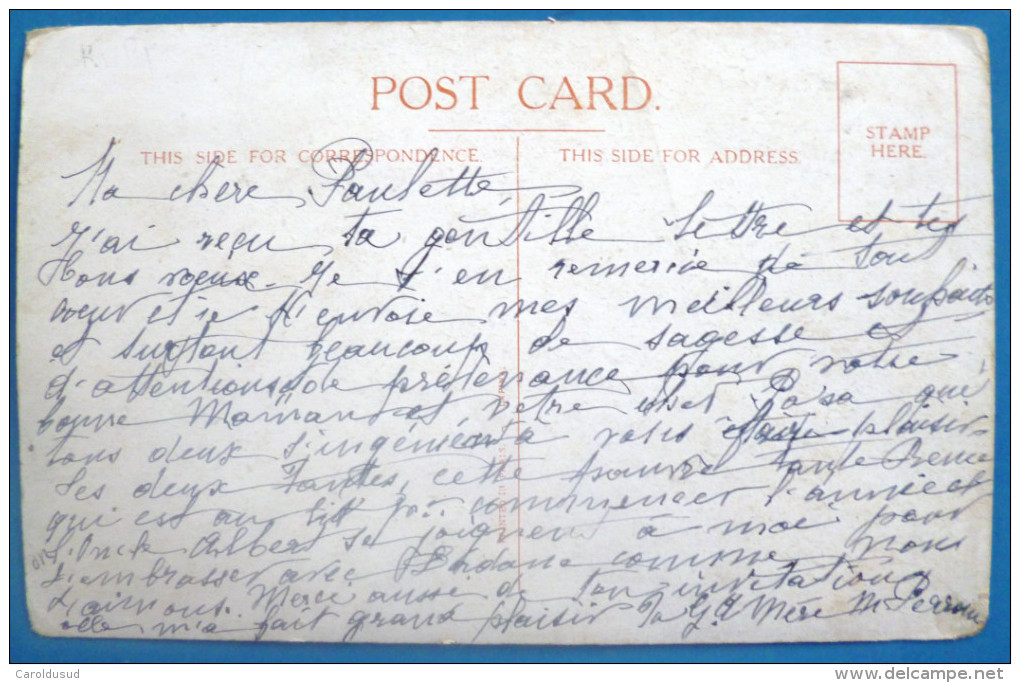 POST CARD.
THIS SIDE FOR CORRESPONDENCE.
THIS SIDE FOR ADDRESS.
STAMP
HERE.
Ma chère Paulette,
J'ai reçu ta gentille lettre et tes
bons vœux. Je t'en remercie de tout
cœur et je t'envoie mes meilleurs souhaits
et surtout beaucoup de sagesse et
d'attentions de prévenance pour votre
bonne Maman et votre cher Papa qui
tous deux s'ingénient à vous faire plaisir.
Tes deux Tantes, cette pauvre tante
qui est au lit pour commencer l'année et
l'Oncle Albert se joignent à moi pour
t'embrasser avec comme nous
t'aimons. Merci aussi de ton invitation
elle m'a fait grand plaisir Ta Gd Mère M
Caroldusud
http://www.delcampe.net